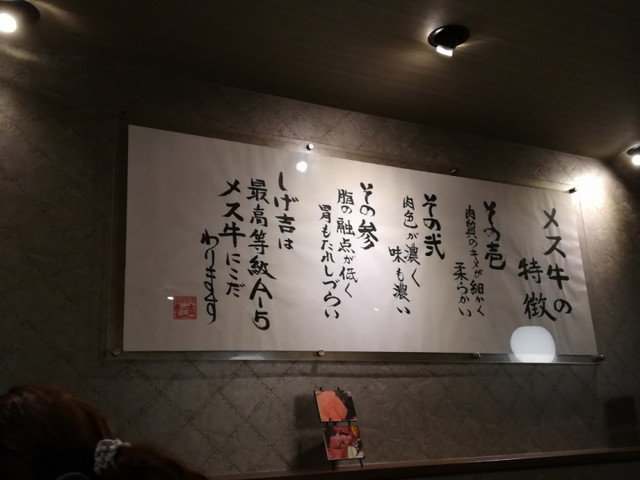 メス牛の
特徴
その壱
肉質のキメが細かく
柔らかい
その弐
肉色が濃く
味も濃い
その参
脂の融点が低く
胃もたれしづらい
しげ吉は
最高等級A-5
メス牛にこだ
わります